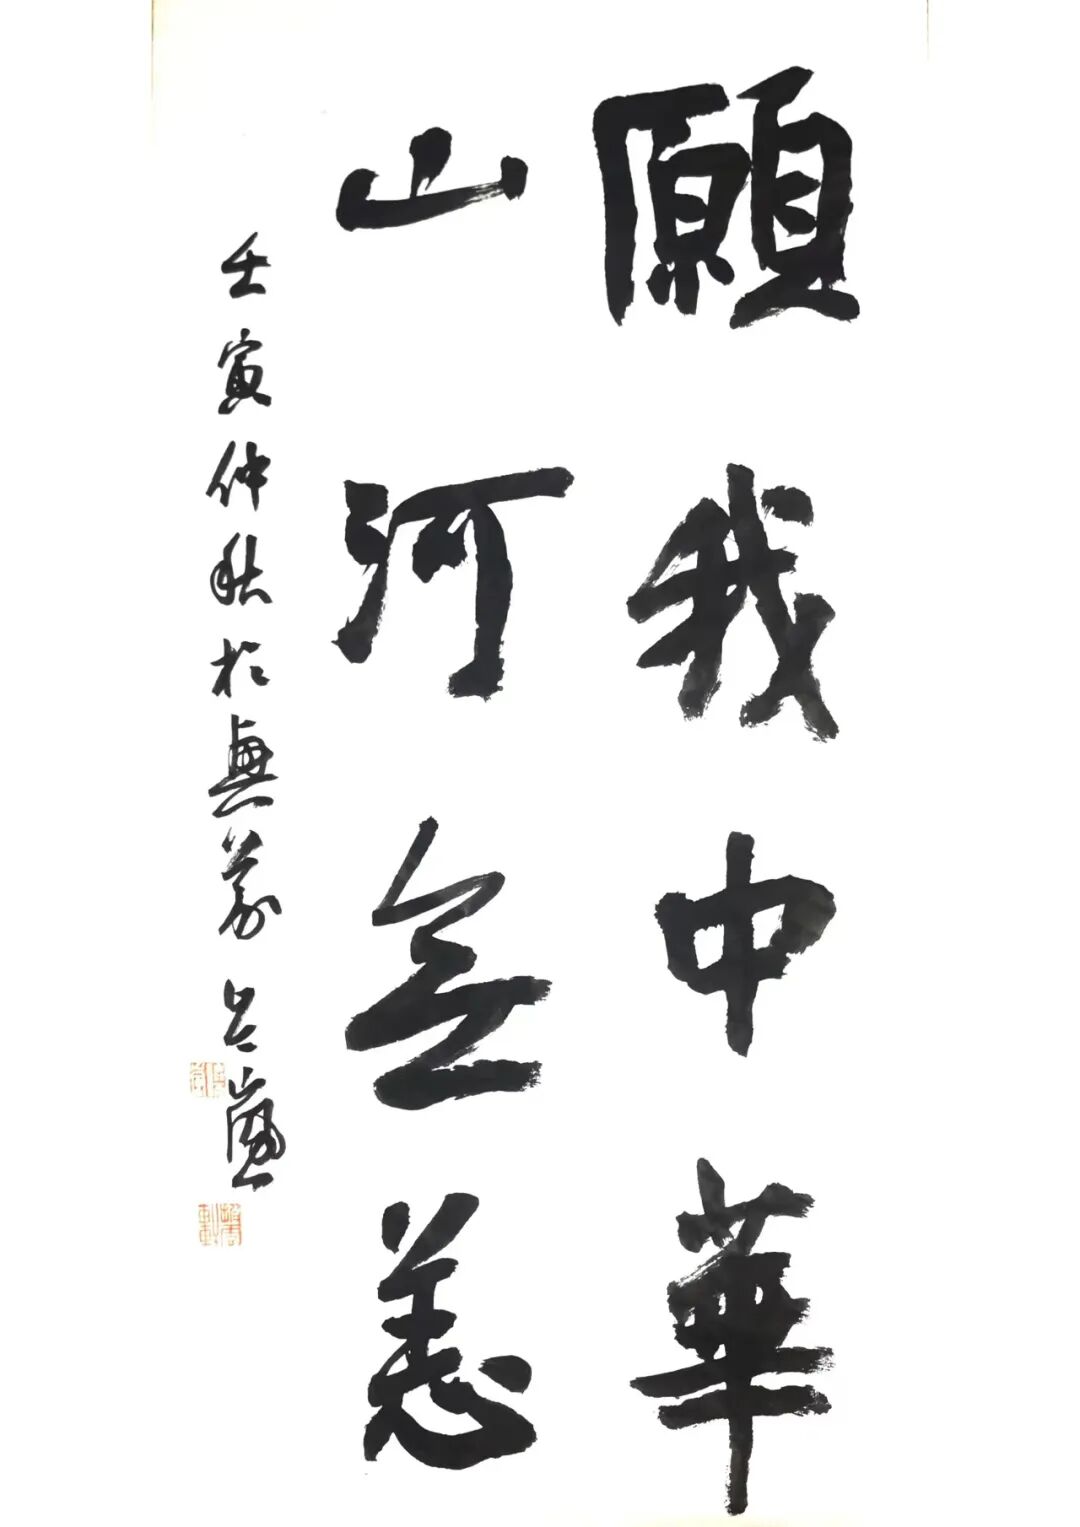 願我中華
山河無恙
壬寅仲秋於無為呂嵐